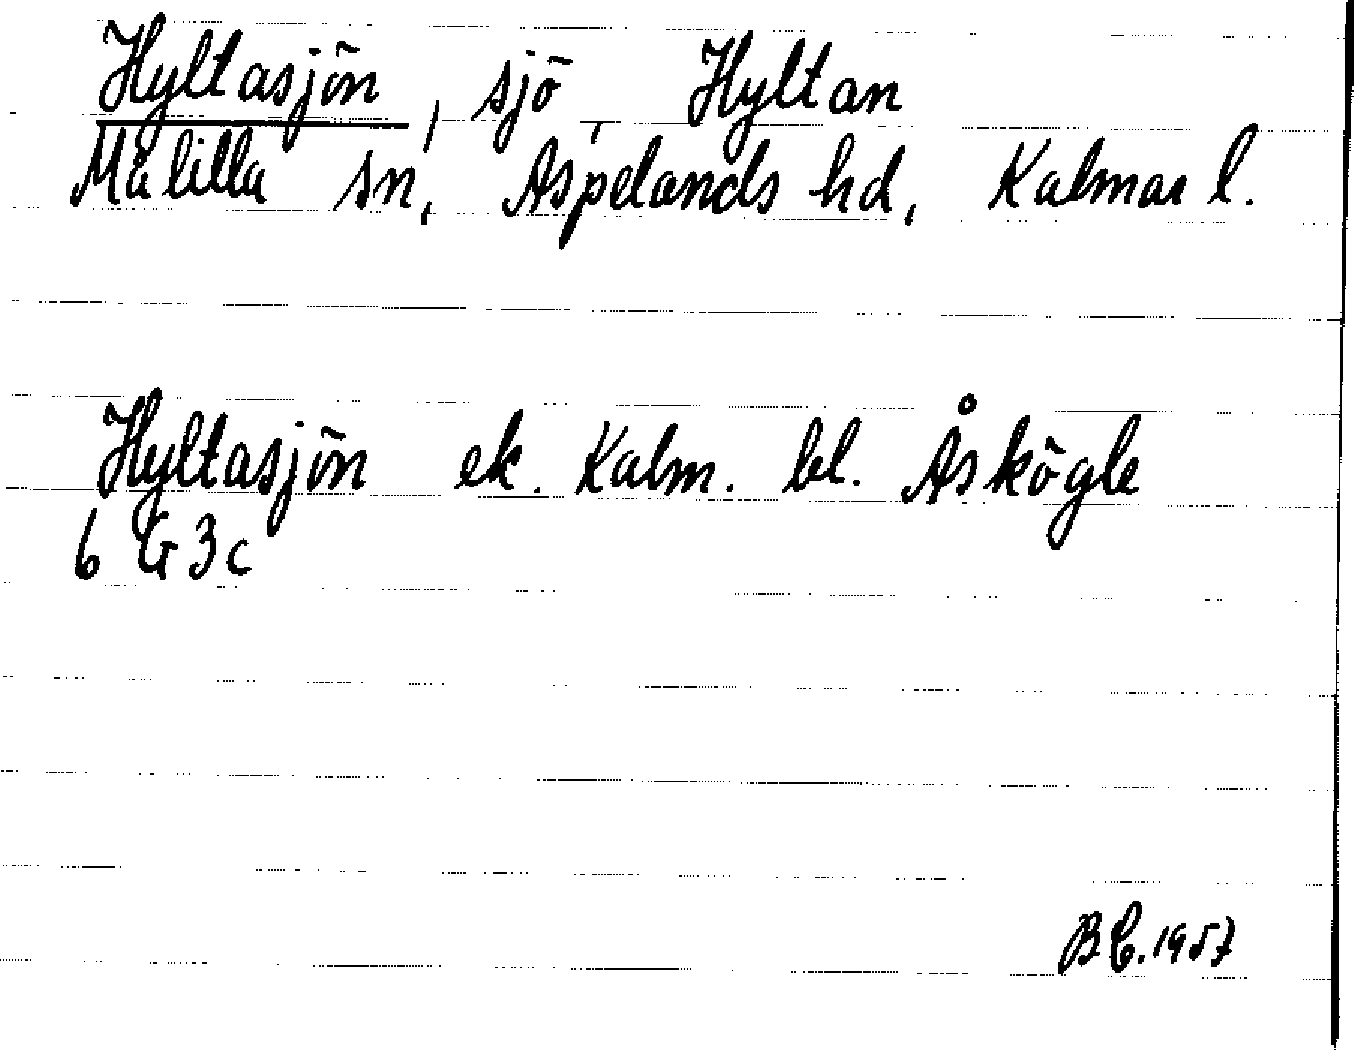 Hyltasjön, sjö, Hyltan
Målilla sn, Aspelands hd, Kalmar l.
Hyltasjön ek. Kalm. bl. Åskögle
6 G 3c
BE. 1957